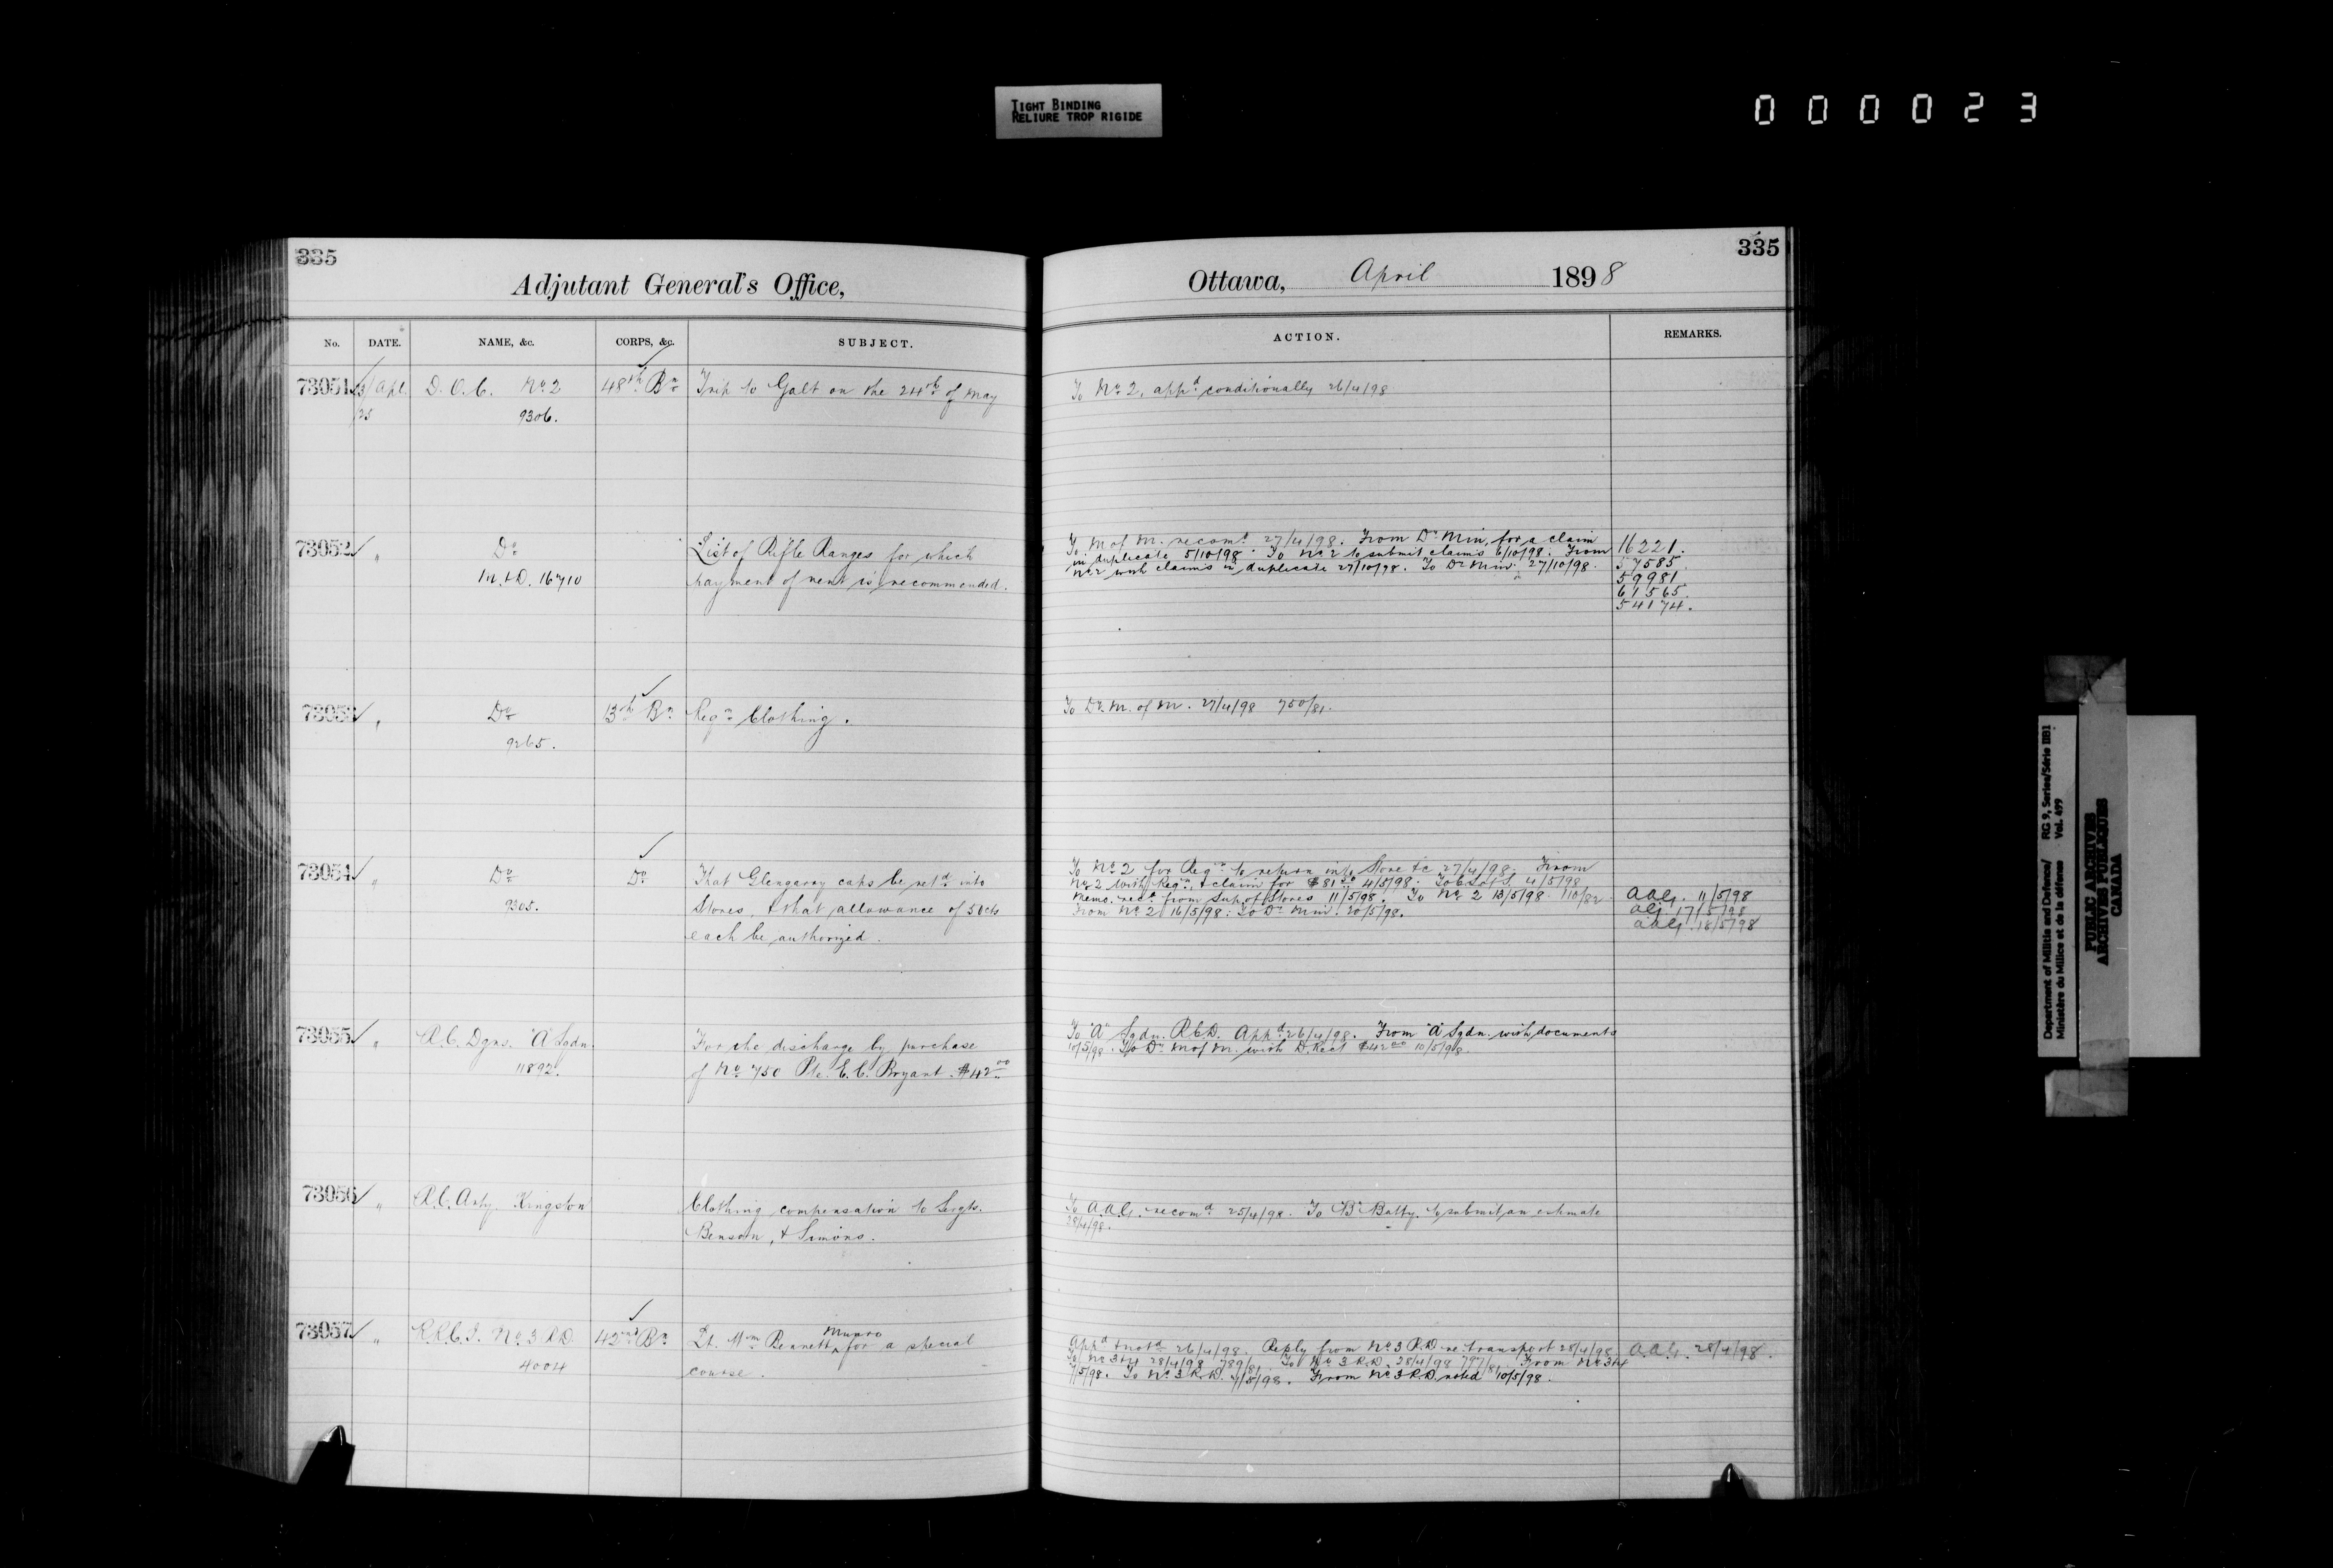 TIGHT BINDING
RELIURE TROP RIGIDE
000023
335
Adjutant General's Office,
No. DATE. NAME, &c. CORPS, &c. SUBJECT.
73051 Apl. D.O.C. No 2 48th Bn Trip to Galt on the 24th of May
25 9306.
73052 " Do List of Rifle Ranges for which
M.&D. 16710 payment of rent is recommended.
73053 " Do 13th Bn Reqn Clothing.
9265.
73054 " Do Do That Glengarry caps be retd into
9305. Stores, & that allowance of 50cts
each be authorized.
73055 " R.C. Dgns. "A" Sqdn. For the discharge by purchase
11892. of No 750 Pte. E.C. Bryant. $42.00
73056 " R.C. Arty. Kingston Clothing compensation to Sergts.
Benson, & Simons.
73057 " R.R.C.I. No 3 R.D. 42nd Bn Lt. Wm Bennett Munro for a special
4004 course.
335
Ottawa, April 1898
ACTION. REMARKS.
To No 2, appd conditionally 26/4/98
To M of M. recomd 27/4/98. From Dr Min, for a claim 16221.
in duplicate 5/10/98 To No 2 to submit claims 6/10/98. From 57585.
No 2 with claims in duplicate 27/10/98. To Dr Min 27/10/98. 59981.
61565.
54174.
To Dr. M. of M. 27/4/98 750/81.
To No 2 for Reqn to return into Store &c 27/4/98. From
No 2 with Reqn & claim for $81 4/5/98. 4/5/98
Memo. recd from Sup. of Stores 11/5/98. To No 2 13/5/98. 110/82. AAG. 11/5/98
From No 2 16/5/98. To Dr Min. 20/5/98. AG 17/5/98
AAG. 18/5/98
To "A" Sqdn. R.C.D. Appd 26/4/98. From "A" Sqdn. with documents
10/5/98. To Dr M of M. with D. Rect $42.00 10/5/98.
To A.A.G. recomd 25/4/98. To "B" Batty. to submit an estimate
28/4/98.
Appd & notd 26/4/98. Reply from No 3 R.D. re transport 28/4/98. A.A.G. 28/4/98.
To No 3&4 28/4/98 789/81. To No 3 R.D. 28/4/98 797/81. From No 3&4
7/5/98. To No 3 R.D. 7/5/98. From No 3 R.D. noted 10/5/98.
Department of Militia and Defence/ RG 9, Series/Série IIB1
Ministère du Milice et de la défence Vol. 499
PUBLIC ARCHIVES
ARCHIVES PUBLIQUES
CANADA